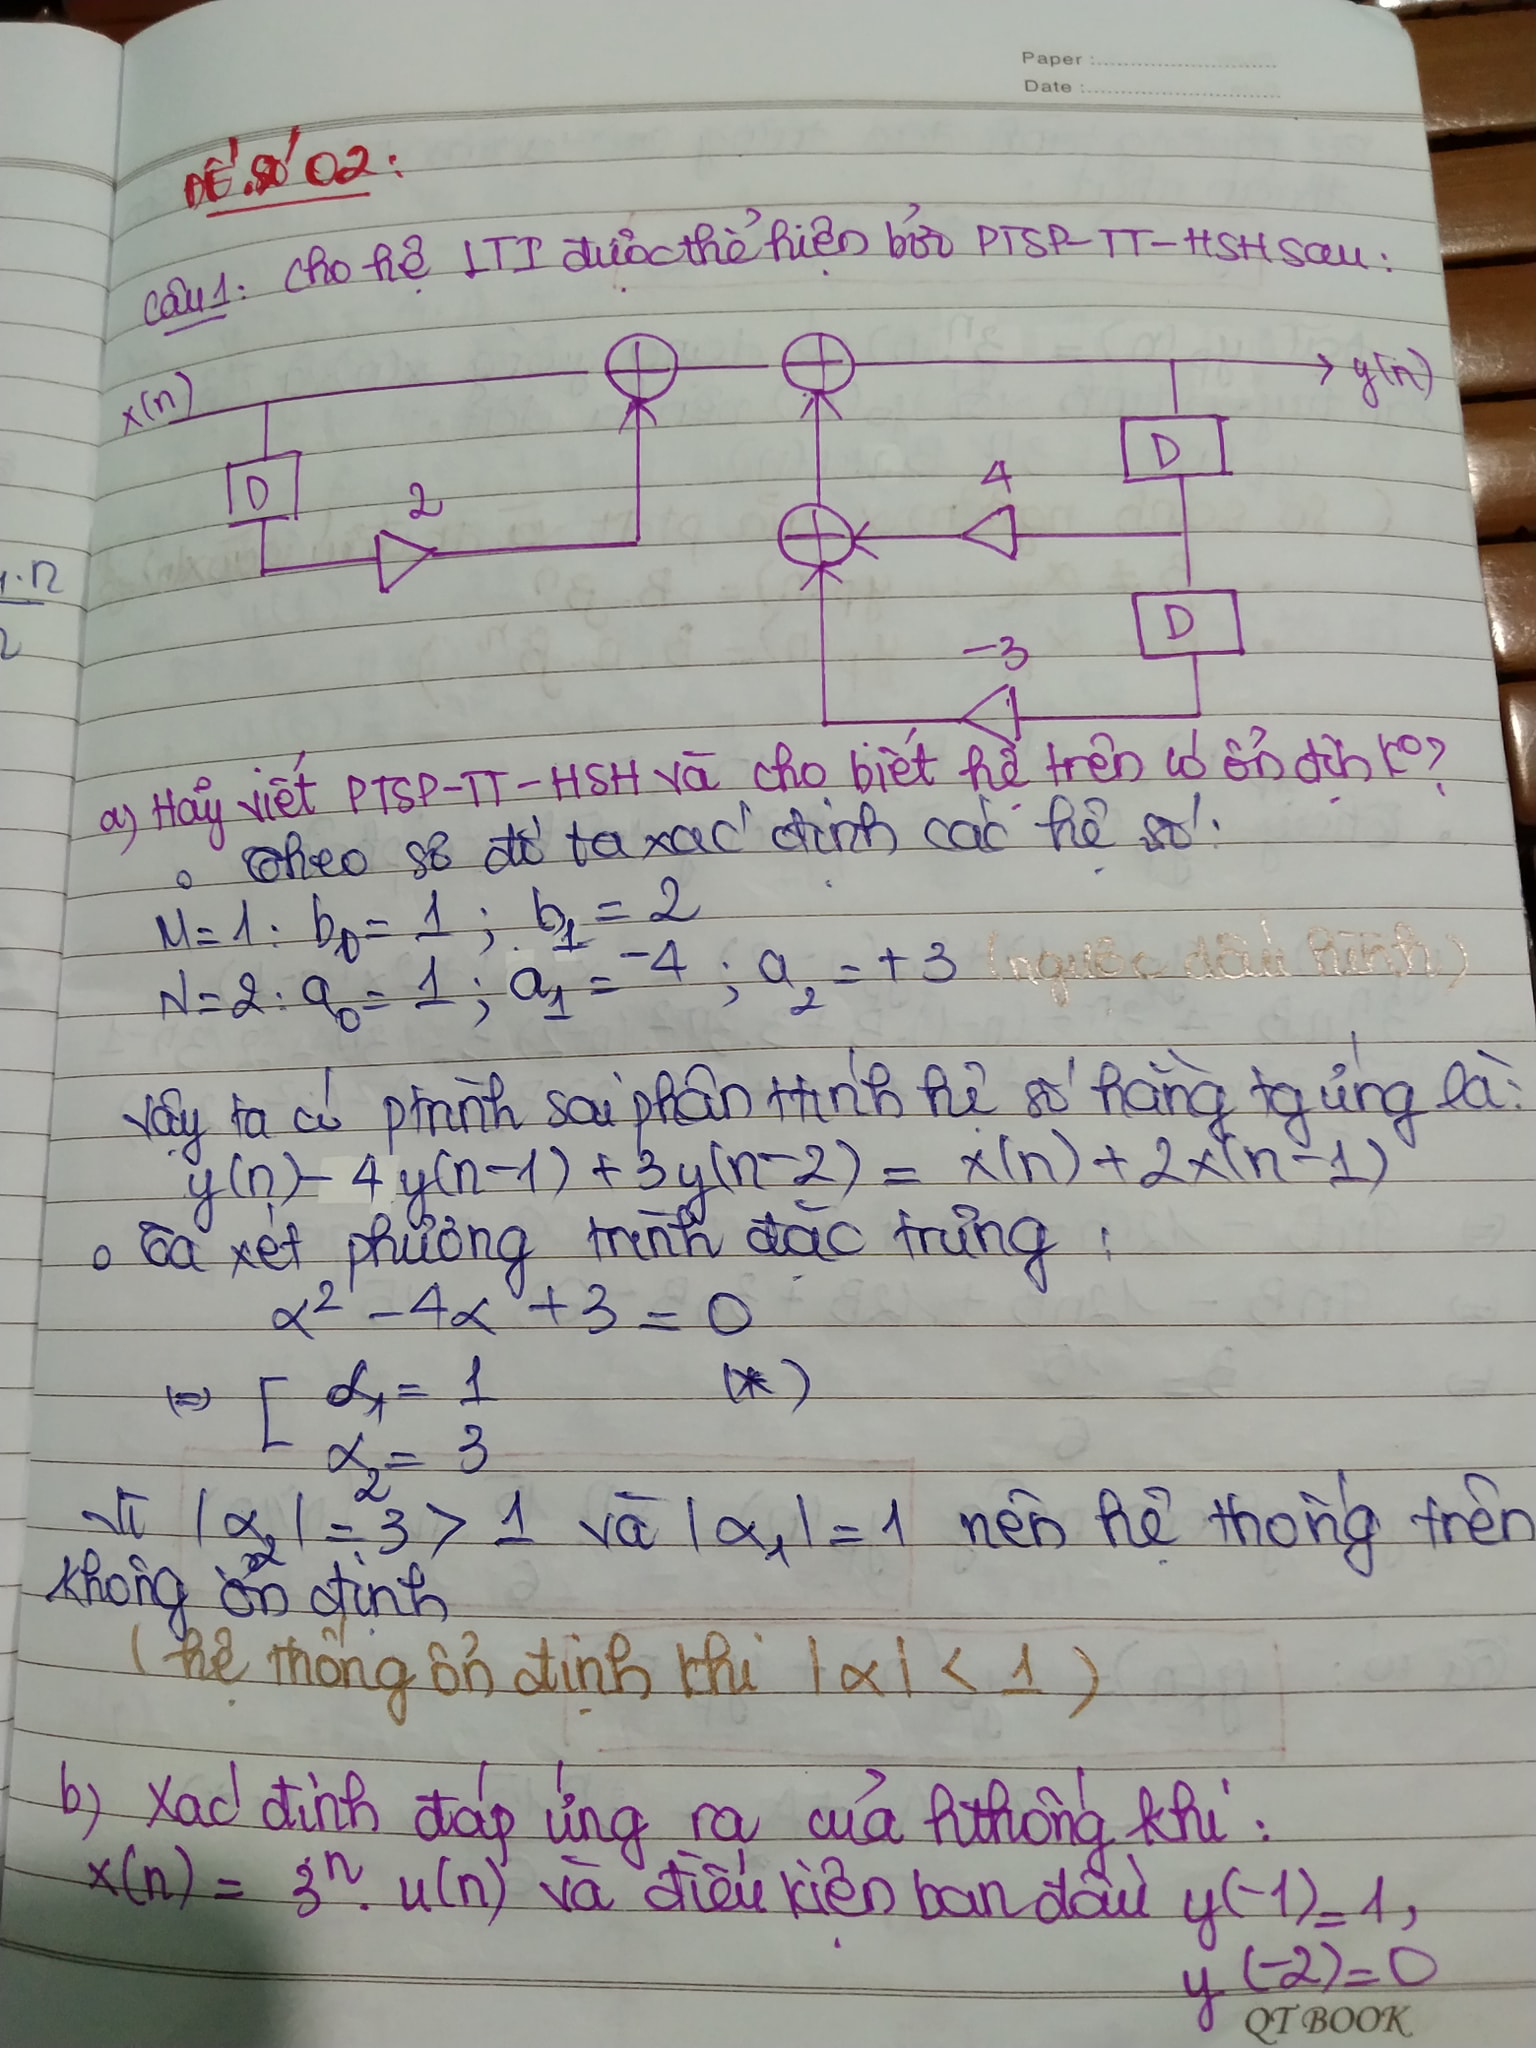 Paper :
Date :
ĐỀ SỐ 02:
Câu 1: Cho hệ LTI được thể hiện bởi PTSP-TT-HSH sau:
x(n)
y(n)
D
2
D
4
D
-3
a) Hãy viết PTSP-TT-HSH và cho biết hệ trên có ổn định k°?
Theo sơ đồ ta xác định các hệ số:
M=1: b0 = 1 ; b1 = 2
N=2: a0 = 1 ; a1 = -4 ; a2 = +3 (ngược dấu hình)
Vậy ta có ptrình sai phân ttính hệ số hằng tg ứng là:
y(n) - 4y(n-1) + 3y(n-2) = x(n) + 2x(n-1)
Ta xét phương trình đặc trưng :
α² - 4α + 3 = 0
⇔ [ α1 = 1 (*)
α2 = 3
Vì |α2| = 3 > 1 và |α1| = 1 nên hệ thống trên
không ổn định
( hệ thống ổn định khi |α| < 1 )
b) Xác định đáp ứng ra của hthống khi :
x(n) = 3ⁿ . u(n) và điều kiện ban đầu y(-1) = 1,
y(-2) = 0
QT BOOK